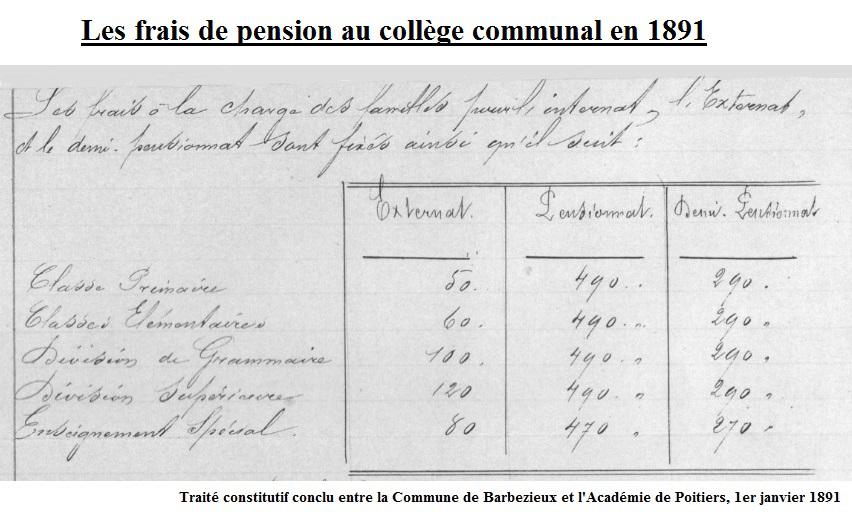 Les frais de pension au collège communal en 1891
Les frais à la charge des familles pour l'internat, l'Externat,
et le demi-pensionnat sont fixés ainsi qu'il suit :
Externat. Pensionnat. Demi-Pensionnat
Classe Primaire 50. 490. " 290. "
Classes Elémentaires 60. 490. " 290 "
Division de Grammaire 100. 490. " 290 "
Division Supérieure 120 490. " 290 "
Enseignement Spécial. 80 470 " 270 "
Traité constitutif conclu entre la Commune de Barbezieux et l'Académie de Poitiers, 1er janvier 1891